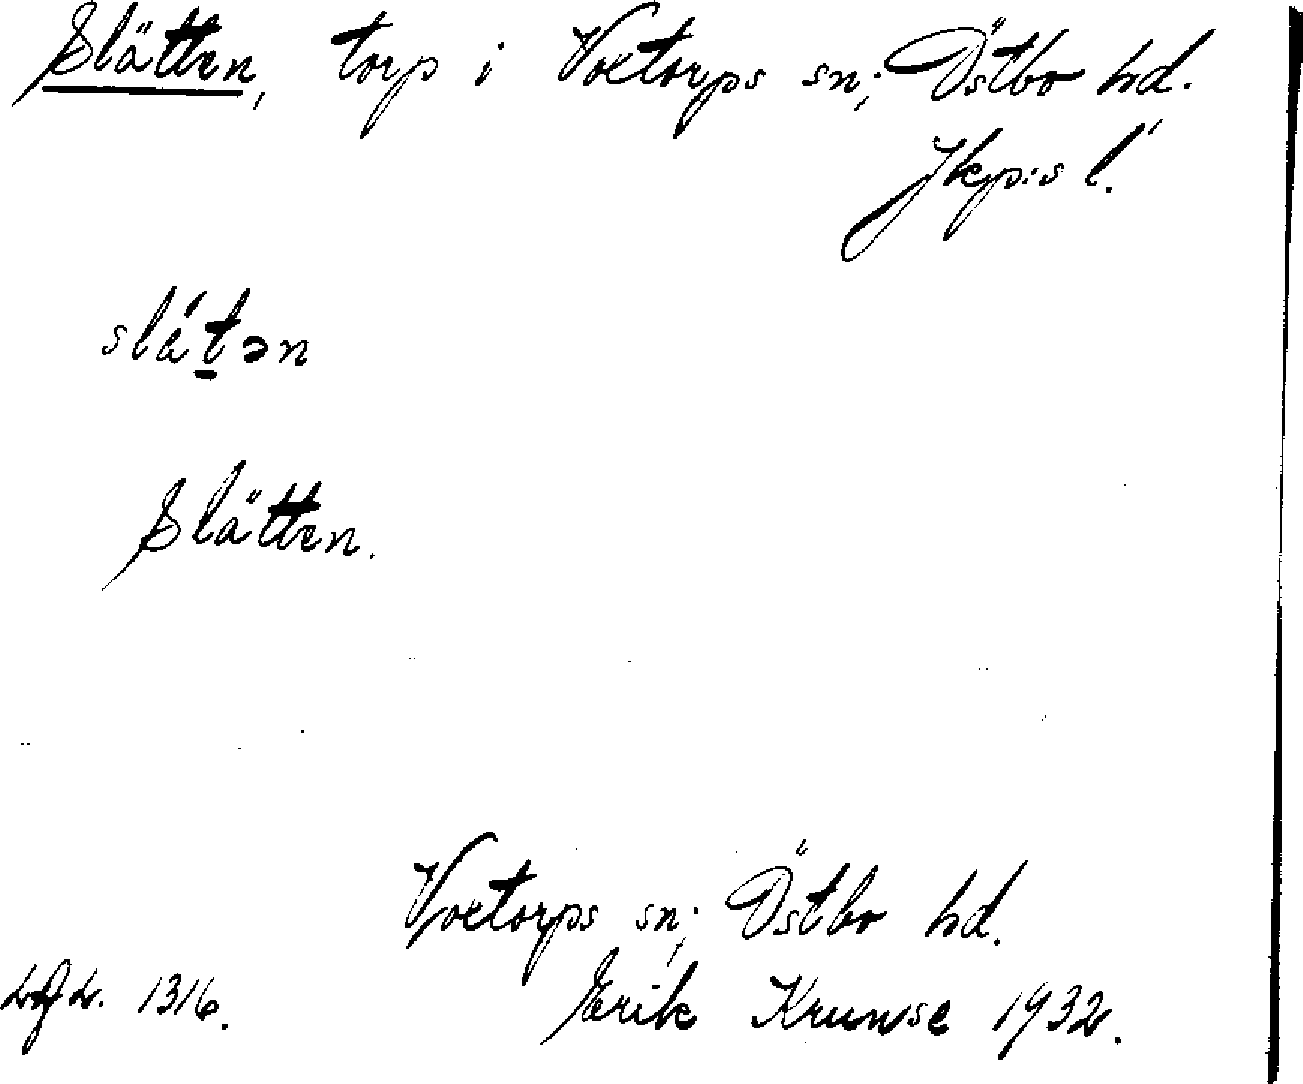 Slätten, torp i Voxtorps sn; Östbo hd.
Jkp:s l.
slät̲ən
Slätten.
Voxtorps sn; Östbo hd.
1316.
Erik Krunse 1932.